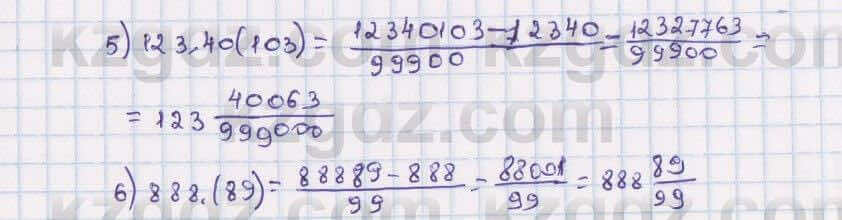 5) 123.40(103) = 12340103-12340 / 99900 = 12327763 / 99900 =
= 123 40063 / 999000
6) 888.(89) = 88889-888 / 99 = 88001 / 99 = 888 89 / 99
kzgdz.com